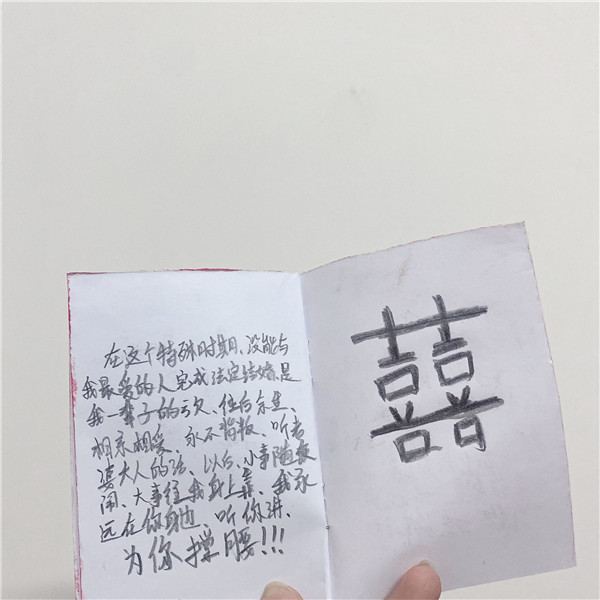 在这个特殊时期、没能与
我最爱的人完成法定结婚、是
我一辈子的亏欠、往后余生、
相亲相爱、永不背叛、听老
婆大人的话、以后、小事随便
闹、大事往我身上靠、我永
远在你身边、听你讲、
为你撑腰!!!
囍